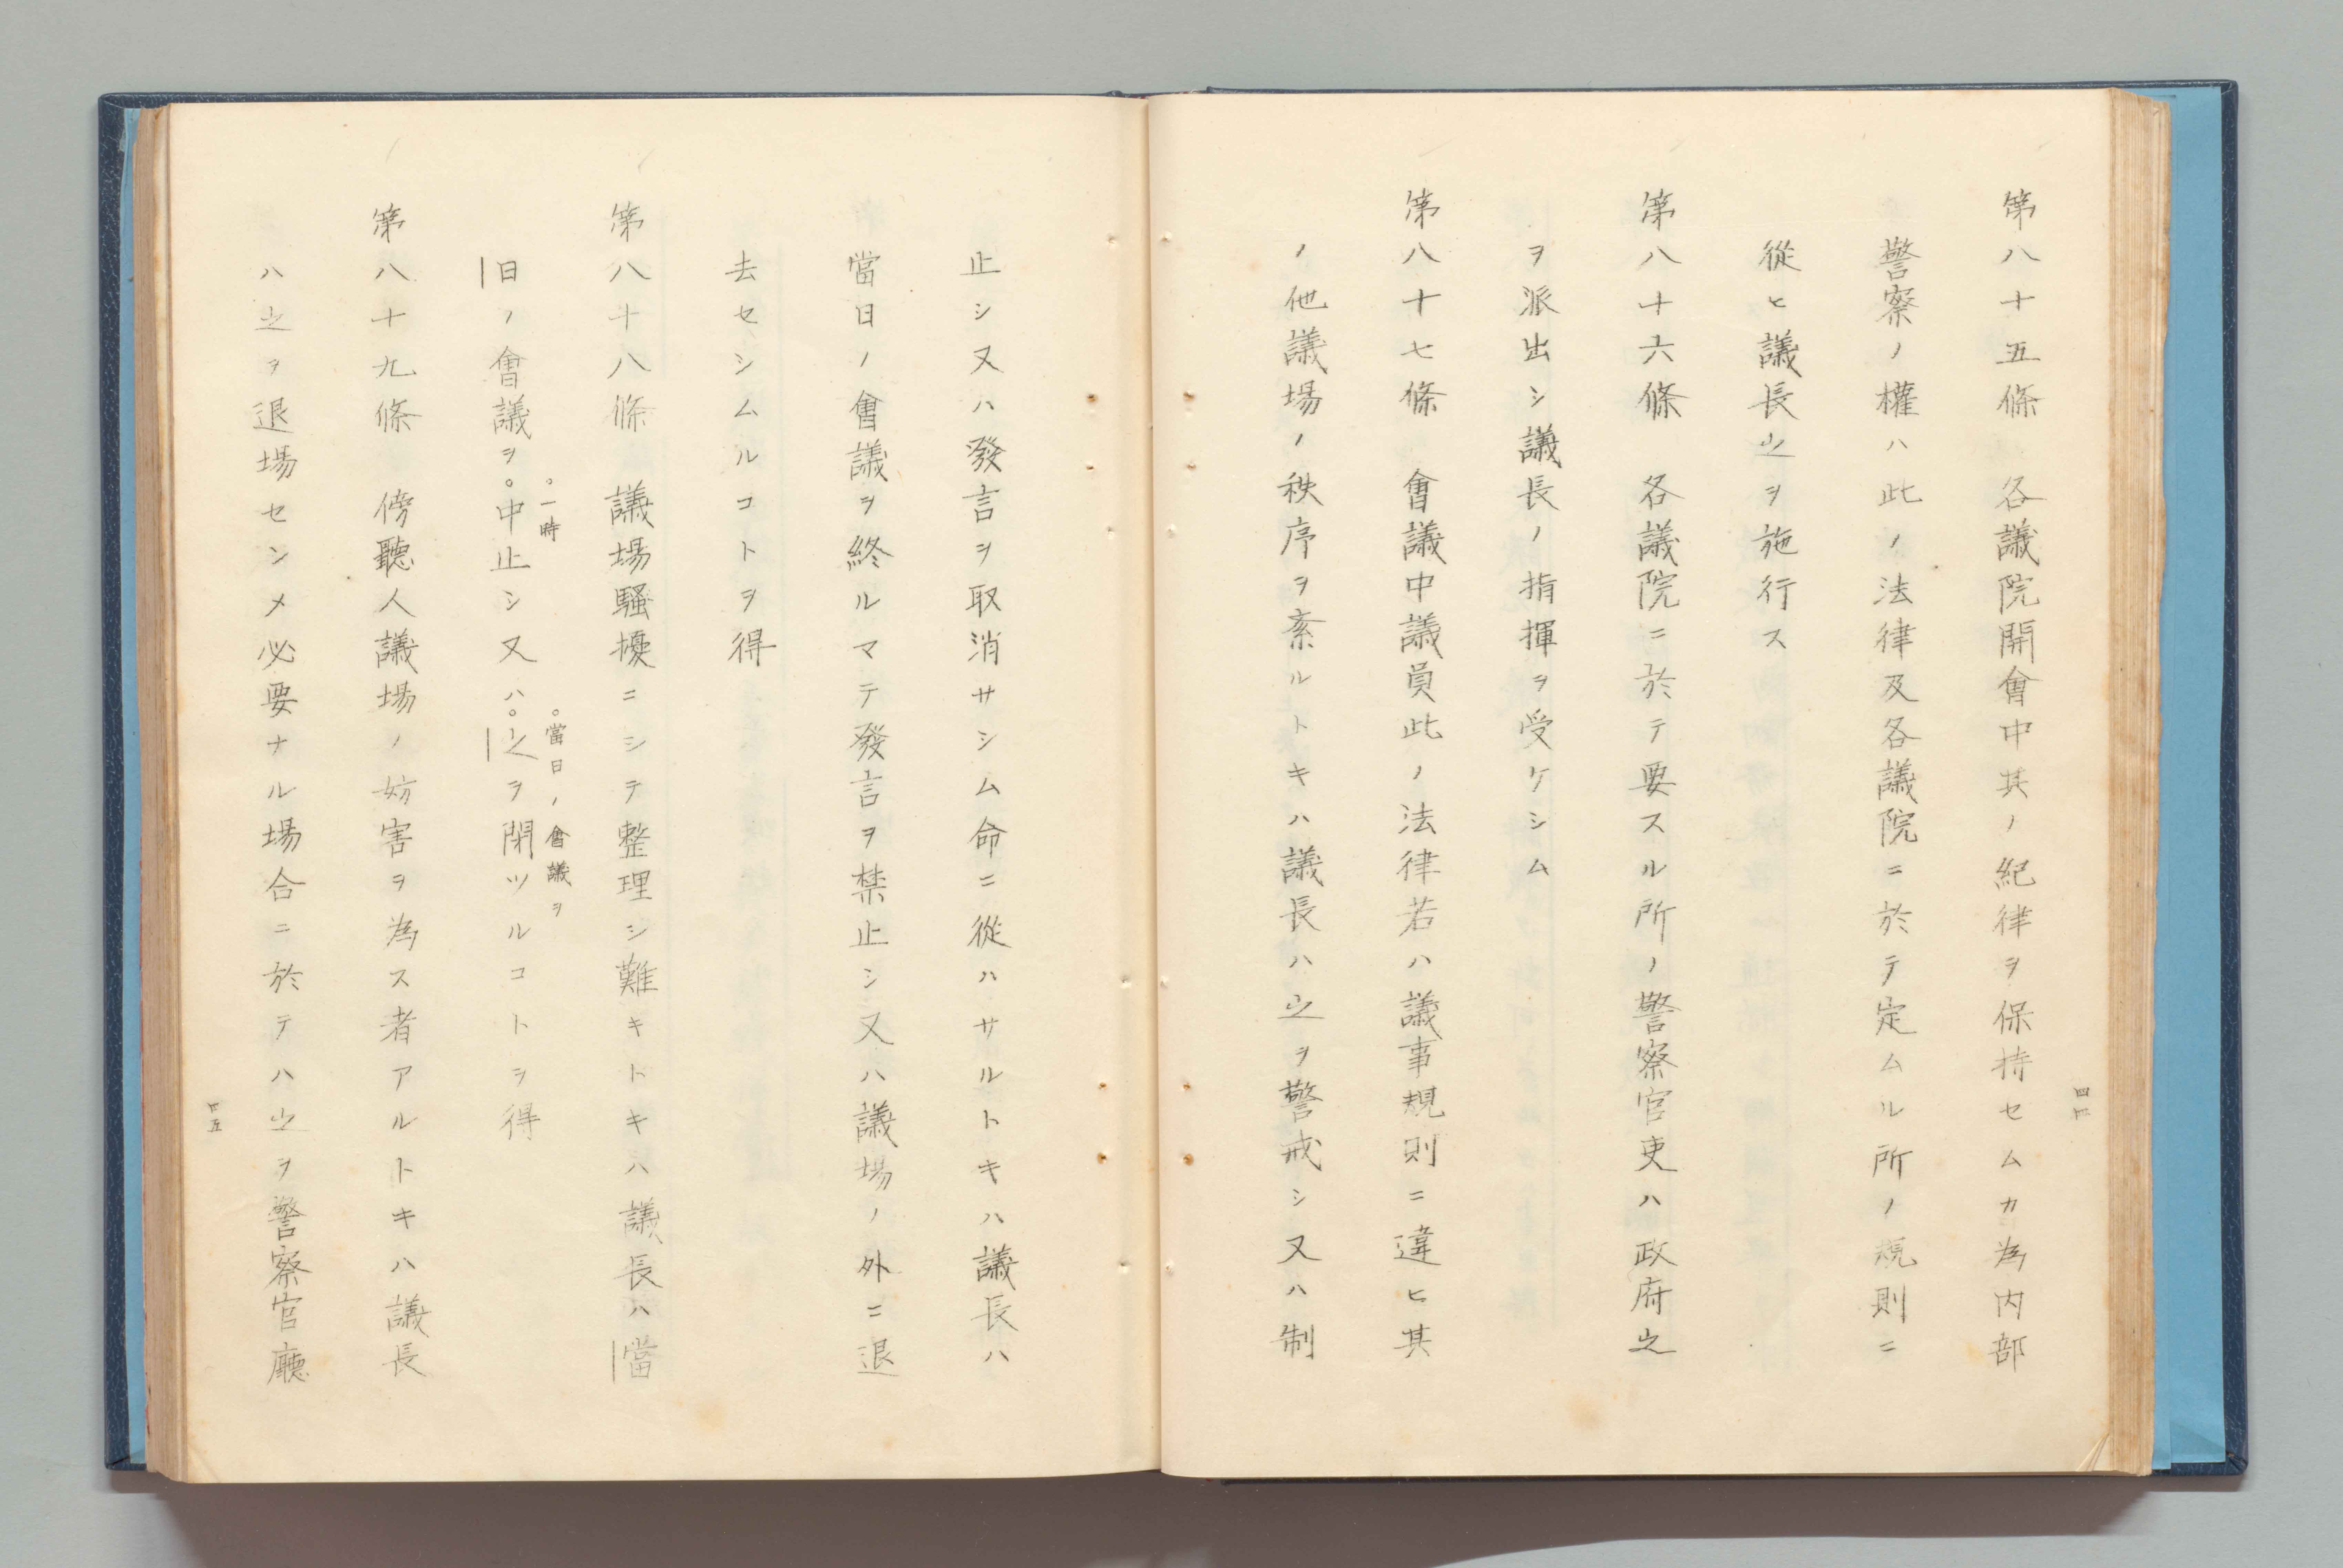 第八十五條　各議院開會中其ノ紀律ヲ保持セムカ為内部
警察ノ權ハ此ノ法律及各議院ニ於テ定ムル所ノ規則ニ
從ヒ議長之ヲ施行ス
第八十六條　各議院ニ於テ要スル所ノ警察官吏ハ政府之
ヲ派出シ議長ノ指揮ヲ受ケシム
第八十七條　會議中議員此ノ法律若ハ議事規則ニ違ヒ其
ノ他議場ノ秩序ヲ紊ルトキハ議長ハ之ヲ警戒シ又ハ制
四四
止シ又ハ發言ヲ取消サシム命ニ從ハサルトキハ議長ハ
當日ノ會議ヲ終ルマテ發言ヲ禁止シ又ハ議場ノ外ニ退
去セシムルコトヲ得
第八十八條　議場騷擾ニシテ整理シ難キトキハ議長ハ當
。一時
。當日ノ會議ヲ
日ノ會議ヲ。中止シ又ハ。之ヲ閉ツルコトヲ得
第八十九條　傍聽人議場ノ妨害ヲ為ス者アルトキハ議長
ハ之ヲ退場センメ必要ナル場合ニ於テハ之ヲ警察官廳
四五